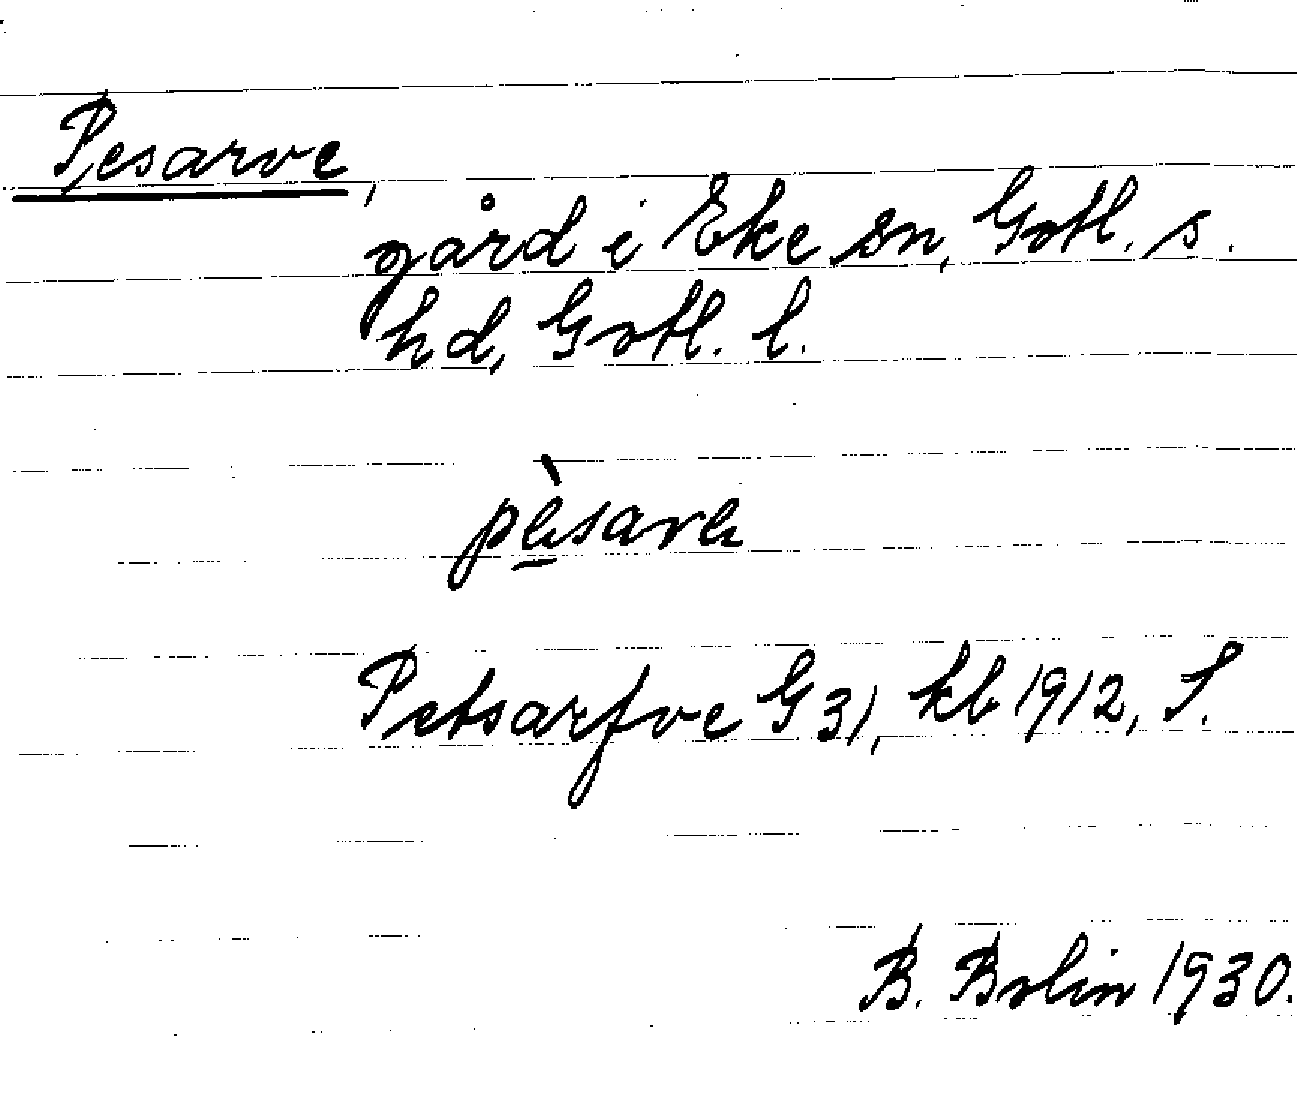 Pesarve,
gård i Eke sn, Gotl. s.
hd, Gotl. l.
pèsarve
Petsarfve G 31, kb 1912, S.
B. Bolin 1930.